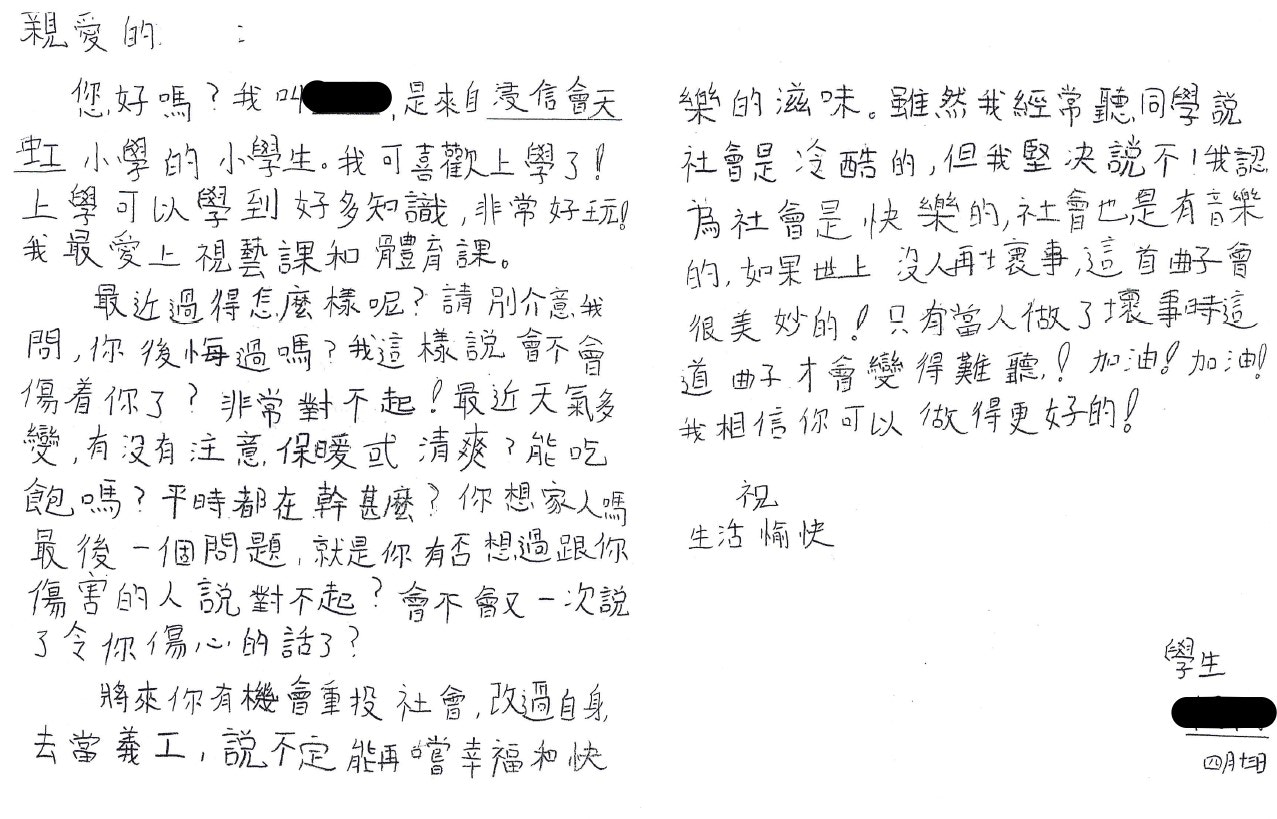 親愛的　　：
您好嗎？我叫　　，是來自浸信會天
虹小學的小學生。我可喜歡上學了！
上學可以學到好多知識，非常好玩！
我最愛上視藝課和體育課。
最近過得怎麼樣呢？請別介意我
問，你後悔過嗎？我這樣說會不會
傷着你了？非常對不起！最近天氣多
變，有没有注意保暖或清爽？能吃
飽嗎？平時都在幹甚麼？你想家人嗎
最後一個問題，就是你有否想過跟你
傷害的人說對不起？會不會又一次說
了令你傷心的話了？
將來你有機會重投社會，改過自身，
去當義工，說不定能再嚐幸福和快
樂的滋味。雖然我經常聽同學說
社會是冷酷的，但我堅决說不！我認
為社會是快樂的，社會也是有音樂
的，如果世上没人再壞事，這首曲子會
很美妙的！只有當人做了壞事時這
道曲子才會變得難聽！加油！加油！
我相信你可以做得更好的！
祝
生活愉快
學生
四月十三日